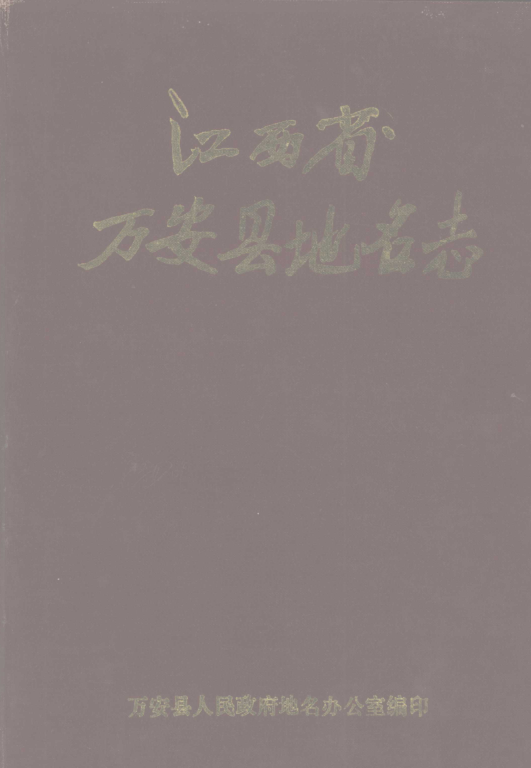 江西省
万安县地名志
万安县人民政府地名办公室编印